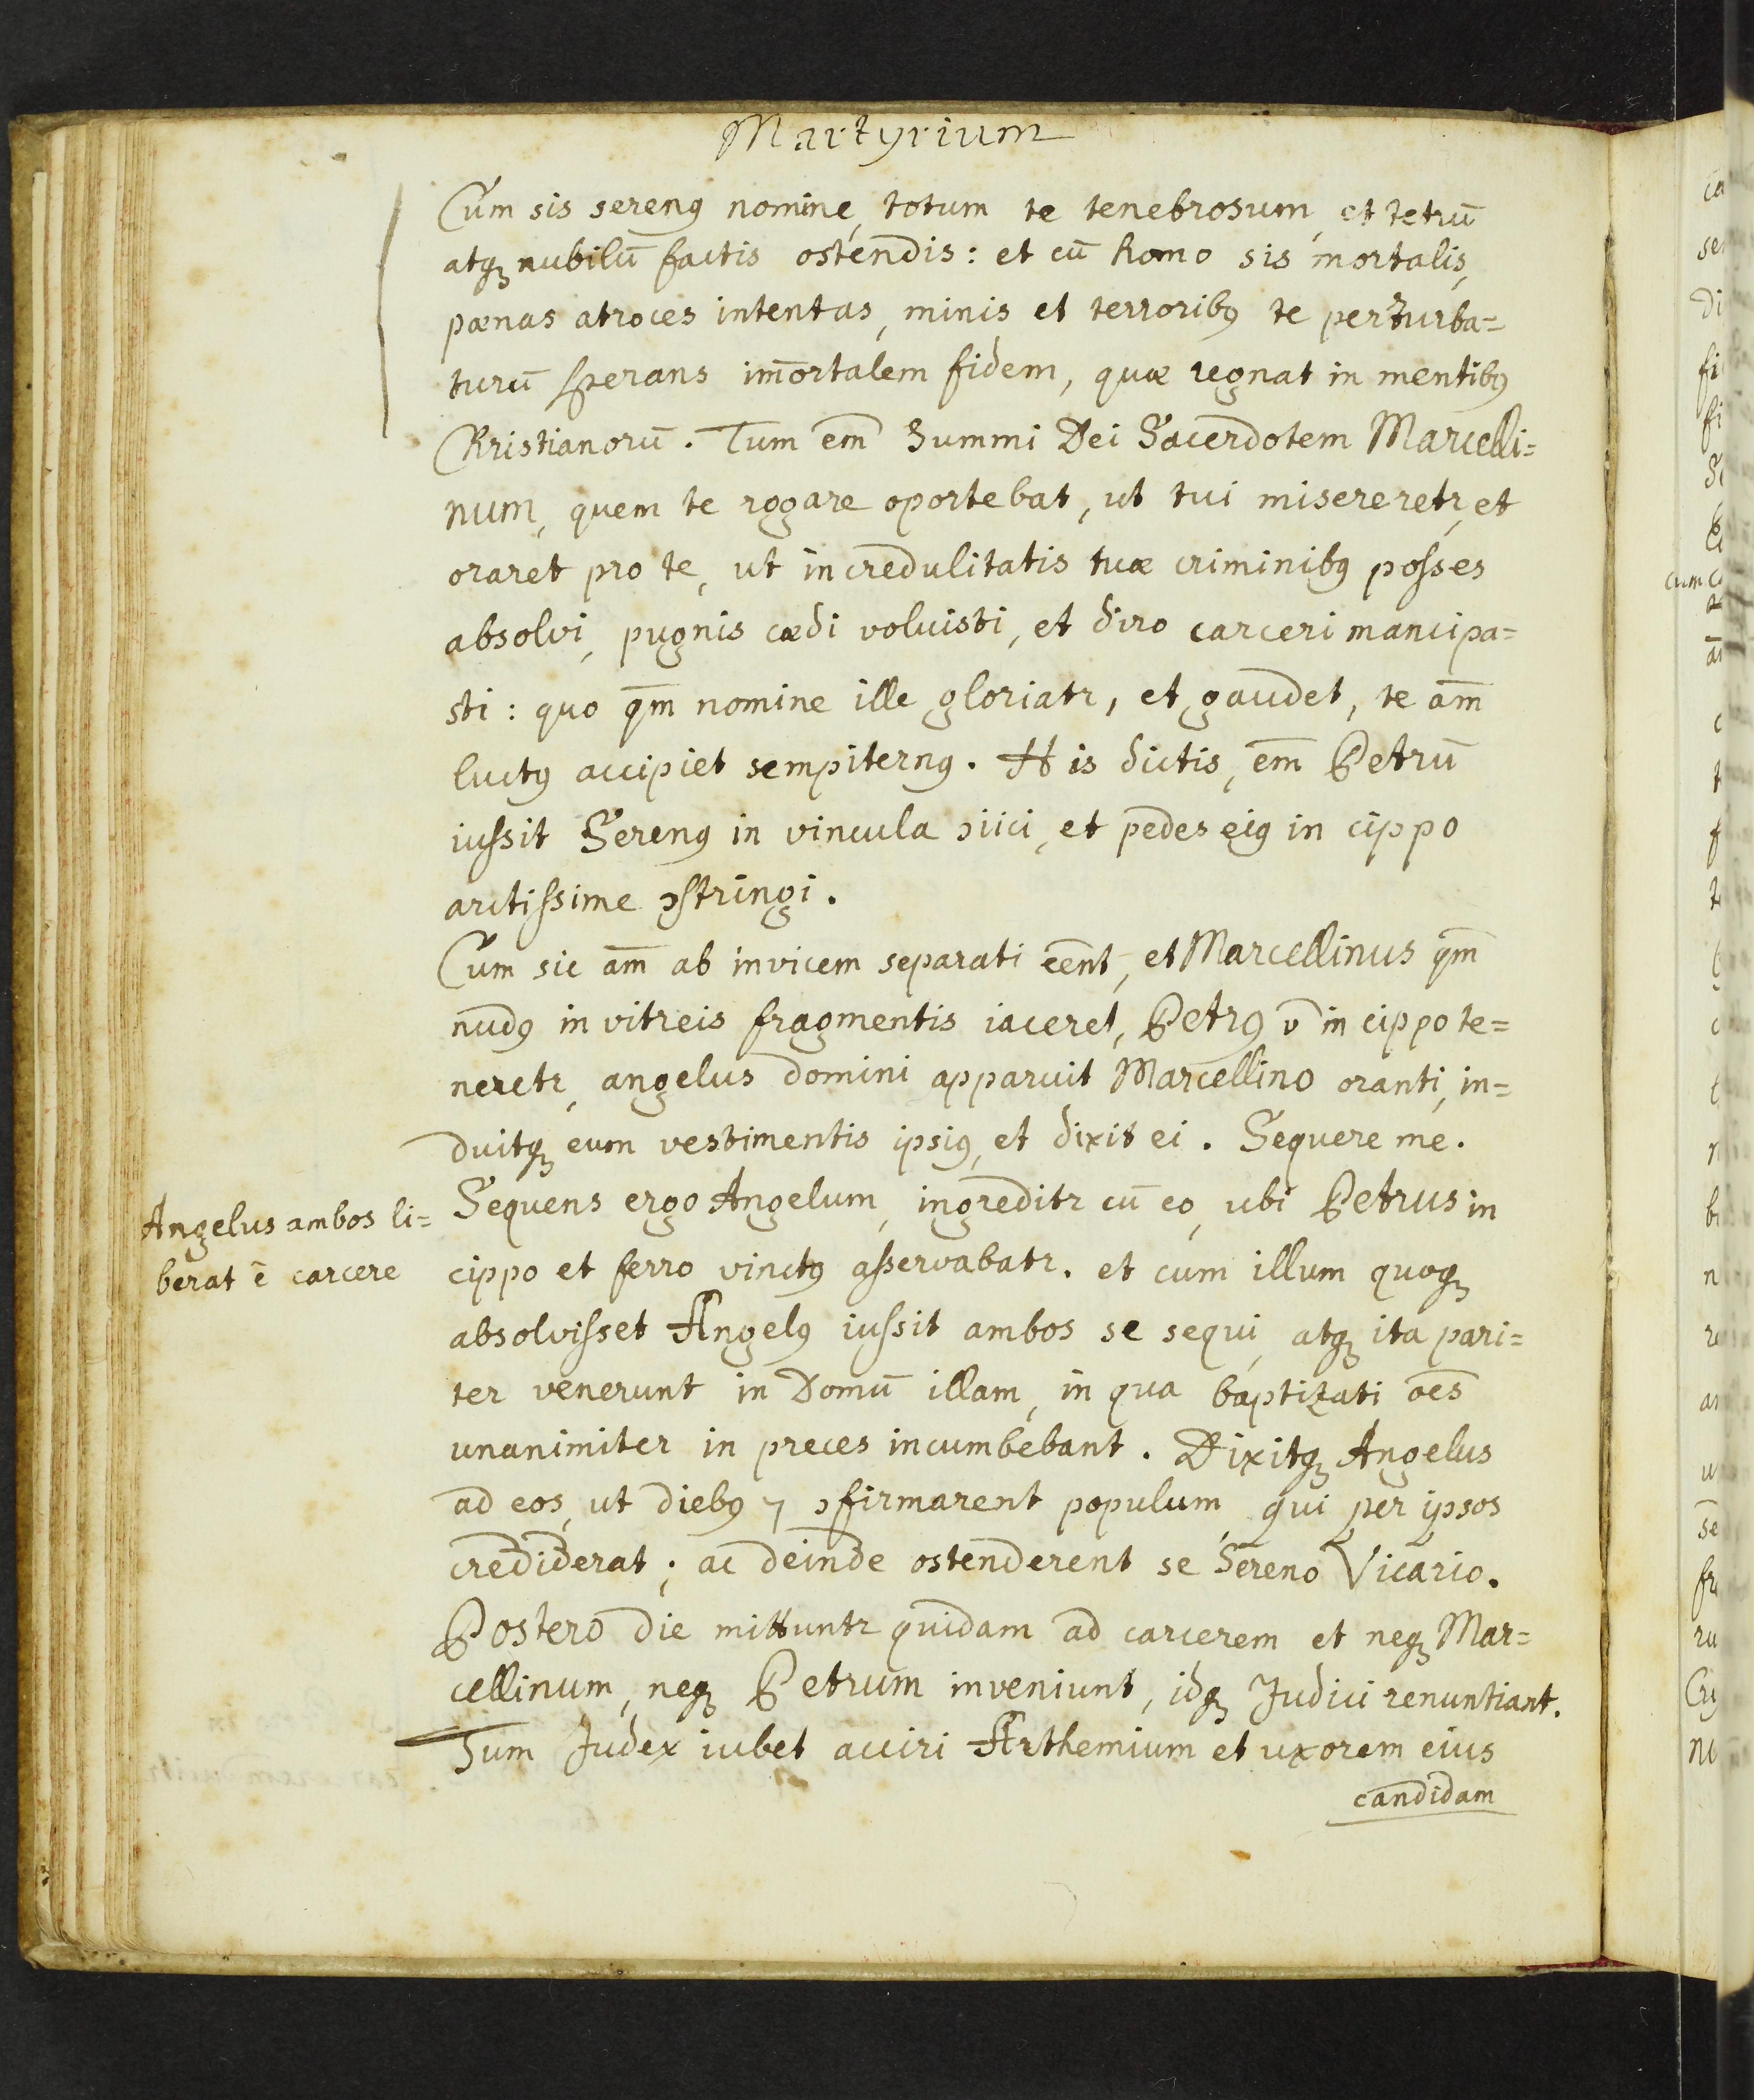 Martyrium
Cum sis serenꝯ nomine, totum te tenebrosum, et tetrū
atqꝫ nubilū factis ostendis: et cū homo sis mortalis,
pœnas atroces intentas, minis et terroribꝯ te perturba=
turū sperans im̄ortalem fidem, quæ regnat in mentibꝯ
Christianorū. Tum em̄ Summi Dei Sacerdotem Marcelli=
num, quem te rogare oportebat, ut tui misereretr, et
oraret pro te, ut incredulitatis tuæ criminibꝯ posses
absolvi, pugnis cædi voluisti, et diro carceri mancipa=
sti: quo qm̄ nomine ille gloriatr, et gaudet, te am̄
luctꝯ accipiet sempiternꝯ. His dictis, em̄ Petrū
iussit Serenꝯ in vincula ɔiici, et pedes eiꝯ in cippo
arctissime ɔstringi.
Cum sic am̄ ab invicem separati eēnt, et Marcellinus qm̄
nudꝯ in vitreis fragmentis iaceret, Petrꝯ v̄ in cippo te=
neretr, angelus domini apparuit Marcellino oranti, in=
duitqꝫ eum vestimentis ipsiꝯ, et dixit ei. Sequere me.
Sequens ergo Angelum, ingreditr cū eo, ubi Petrus in
Angelus ambos li=
berat ē carcere
cippo et ferro vinctꝯ asservabatr. et cum illum quoqꝫ
absolvisset Angelꝯ iussit ambos se sequi, atqꝫ ita pari=
ter venerunt in Domū illam, in qua baptizati oēs
unanimiter in preces incumbebant. Dixitqꝫ Angelus
ad eos, ut diebꝯ 7 ɔfirmarent populum, qui per ipsos
crediderat; ac deinde ostenderent se Sereno Vicario.
Postero die mittuntr quidam ad carcerem et neqꝫ Mar=
cellinum, neqꝫ Petrum inveniunt, idqꝫ Judici renuntiant.
Tum Judex iubet acciri Arthemium et uxorem eius
candidam